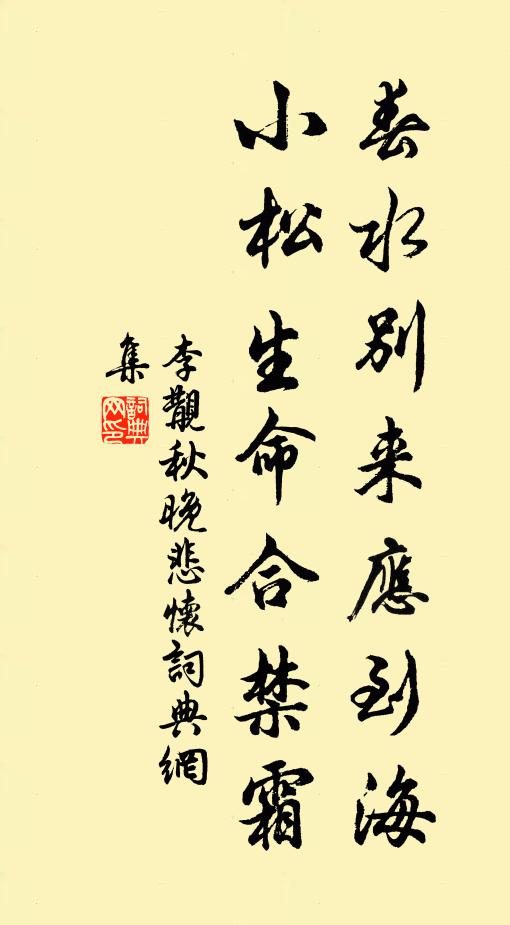 春水別来應到海
小松生命合禁霜
李覯秋晚悲懷詞典網
集
詞典
网印